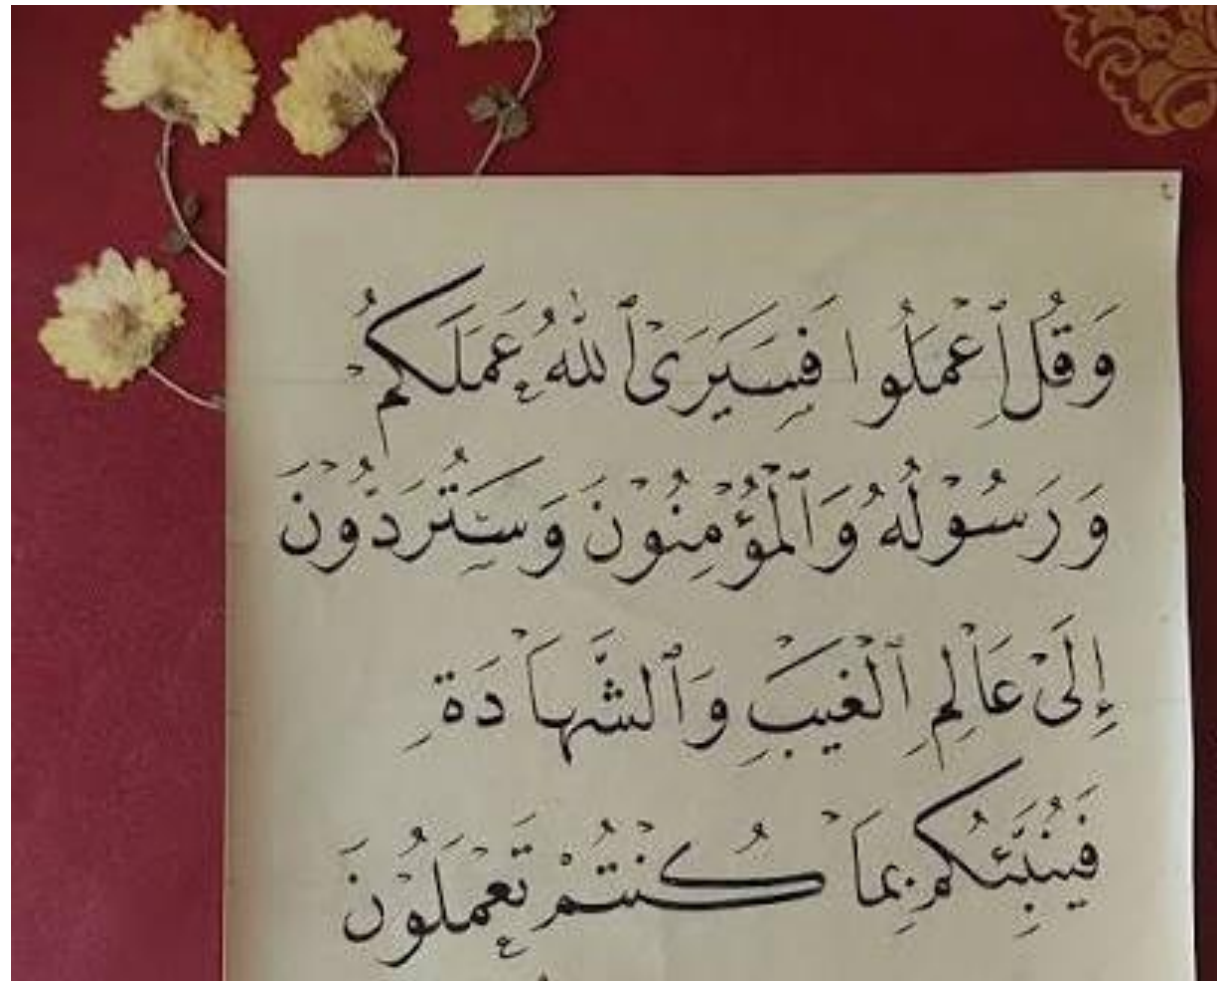 وَقُلِ ٱعْمَلُوا فَسَيَرَىْ ٱللّٰهُ عَمَلَكُمْ
وَرَسُوْلُهُ وَٱلْمُؤْمِنُوْنَ وَسَتُرَدُّوْنَ
إِلَىْ عَاْلِمِ ٱلْغَيْبِ وَٱلشَّهَاْدَةِ
فَيُنَبِّئُكُمْ بِمَاْ كُنْتُمْ تَعْمَلُوْنَ